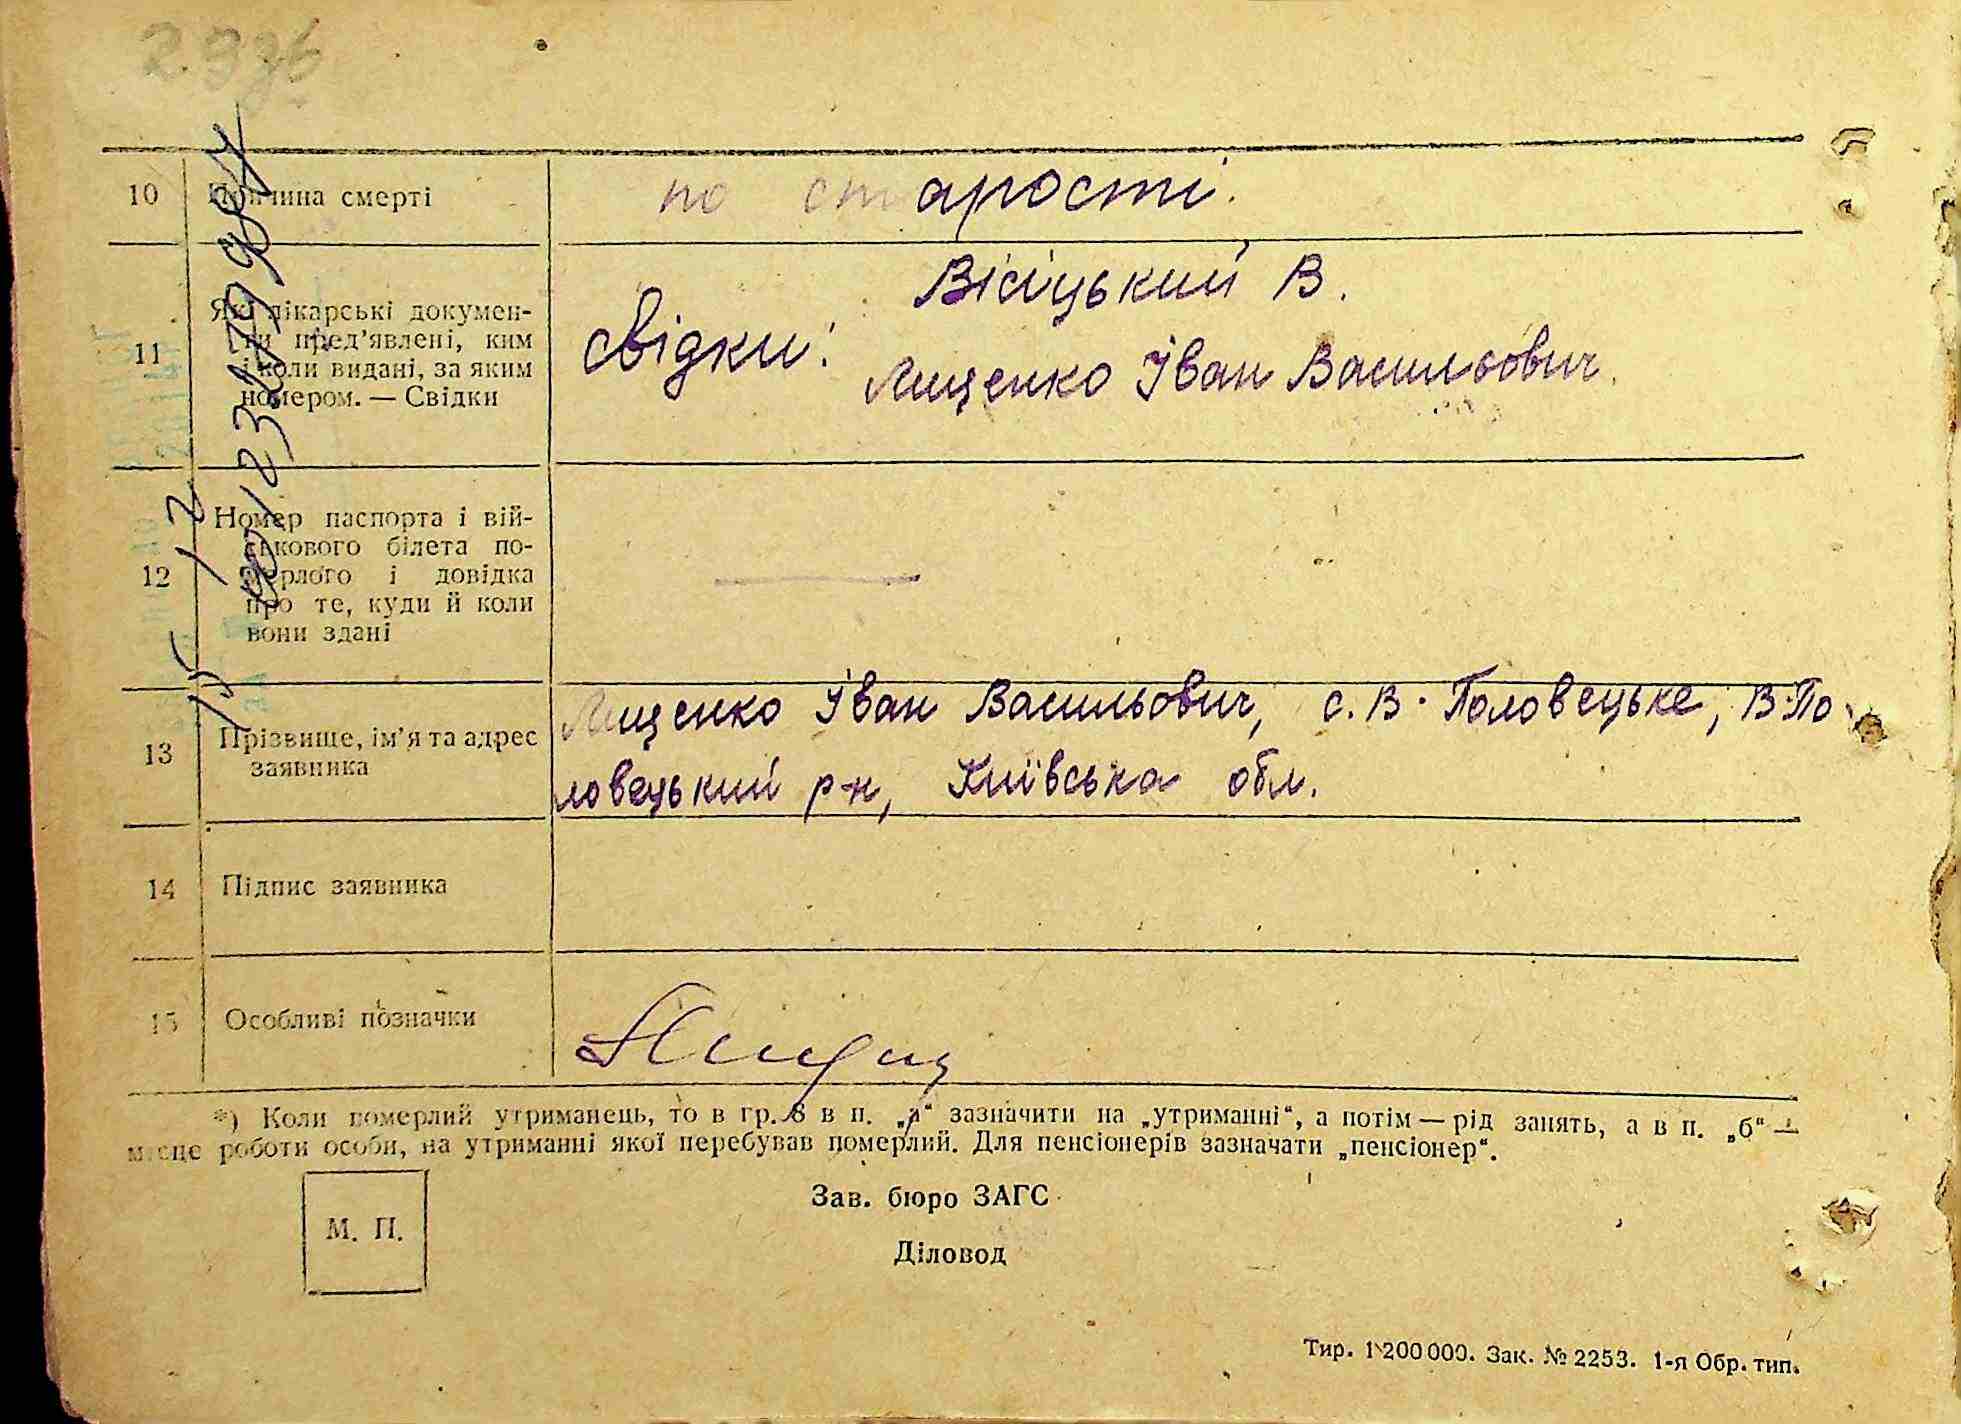 10 Причина смерті по старості.
11 Які лікарські докумен-
ти пред’явлені, ким
і коли видані, за яким
номером. — Свідки
Вісіцький В.
свідки:
Лищенко Іван Васильович.
12 Номер паспорта і вій-
ськового білета по-
мерлого і довідка
про те, куди й коли
вони здані
—
13 Прізвище, ім’я та адрес
заявника
Лищенко Іван Васильович, с. В. Половецьке, В-По-
ловецький р-н, Київська обл.
14 Підпис заявника
15 Особливі позначки
*) Коли померлий утриманець, то в гр. 8 в п. „а“ зазначити на „утриманні“, а потім — рід занять, а в п. „б“ —
місце роботи особи, на утриманні якої перебував померлий. Для пенсіонерів зазначати „пенсіонер“.
М. П.
Зав. бюро ЗАГС
Діловод
Тир. 1 200 000. Зак. № 2253. 1-я Обр. тип.